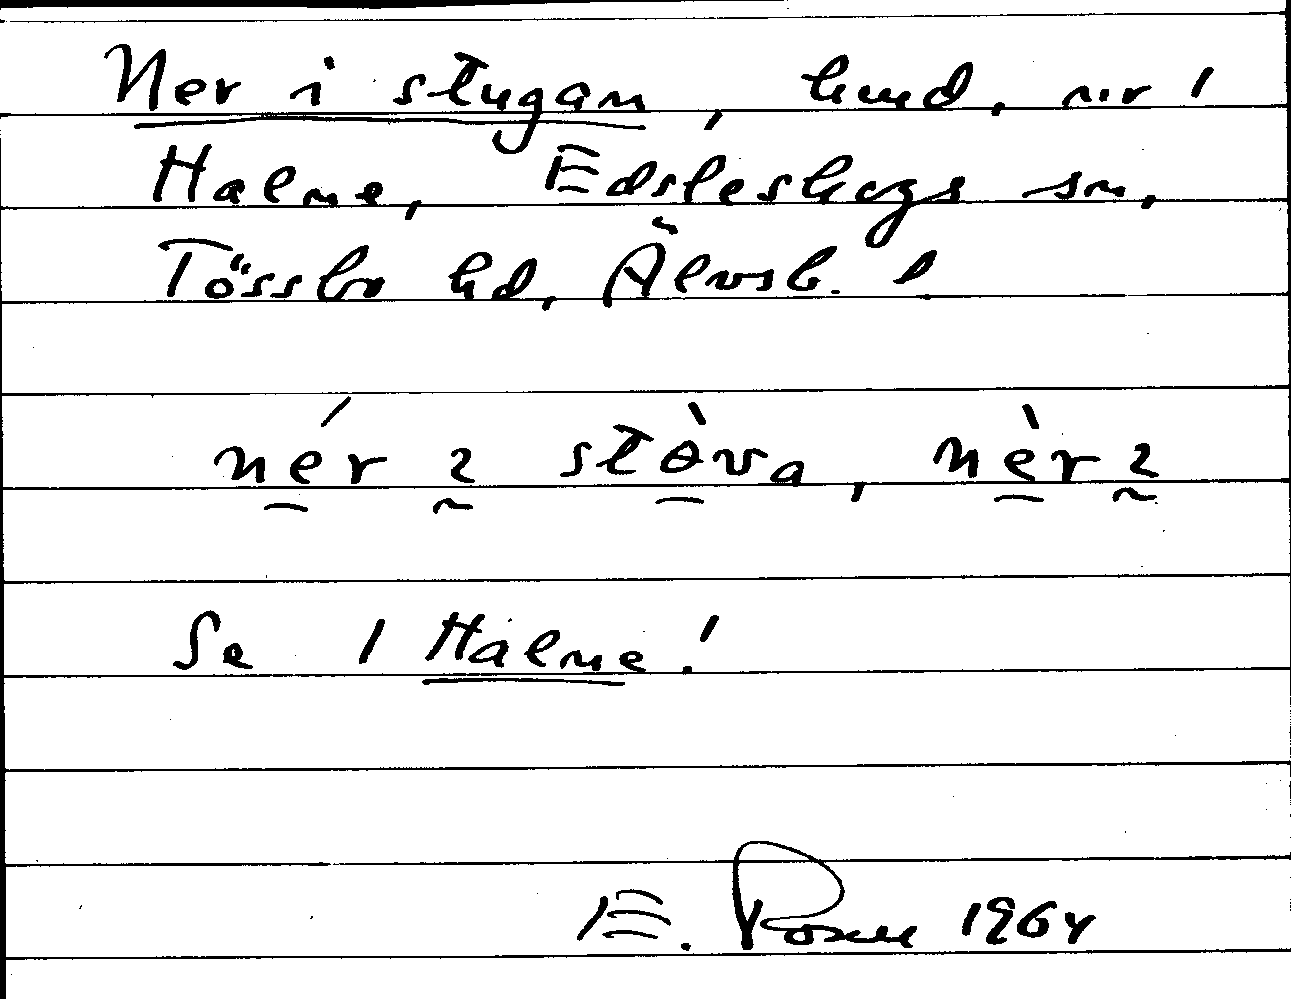 Ner i stugan, hmd. nr 1
Halme, Edsleskogs sn,
Tössbo hd, Älvsb. l
nér i støva, nèr i
Se 1 Halme!
E. Rosell 1964